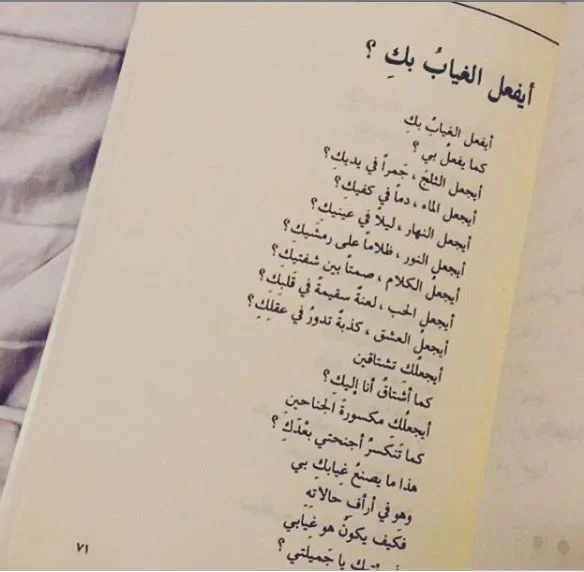 أيفعل الغيابُ بكِ ؟
أيفعل الغيابُ بكِ
كما يفعلُ بي ؟
أيجعل الثلجَ ، جَمراً في يديكِ؟
أيجعل الماء ، دماً في كفيكِ؟
أيجعل النهار ، ليلاً في عينيكِ؟
أيجعل النور ، ظلاماً على رمشَيكِ؟
أيجعلُ الكلام ، صمتاً بين شفتيكِ؟
أيجعلِ الحب ، لعنةً سقيمةً في قلبَكِ؟
أيجعلُ العشق ، كذبةً تدورُ في عقلِكِ؟
أيجعلُك تشتاقين
كما أشتاقُ أنا إليكِ؟
أيجعلُك مكسورةَ الجناحينِ
كما تَتكسرُ أجنحتي بعْدَكِ ؟
هذا ما يصنعُ غيابكِ بي
وهو في أرأفِ حالاتِهِ
فكيف يكونُ هو غيابي
يا جَميلتي ؟
٧١